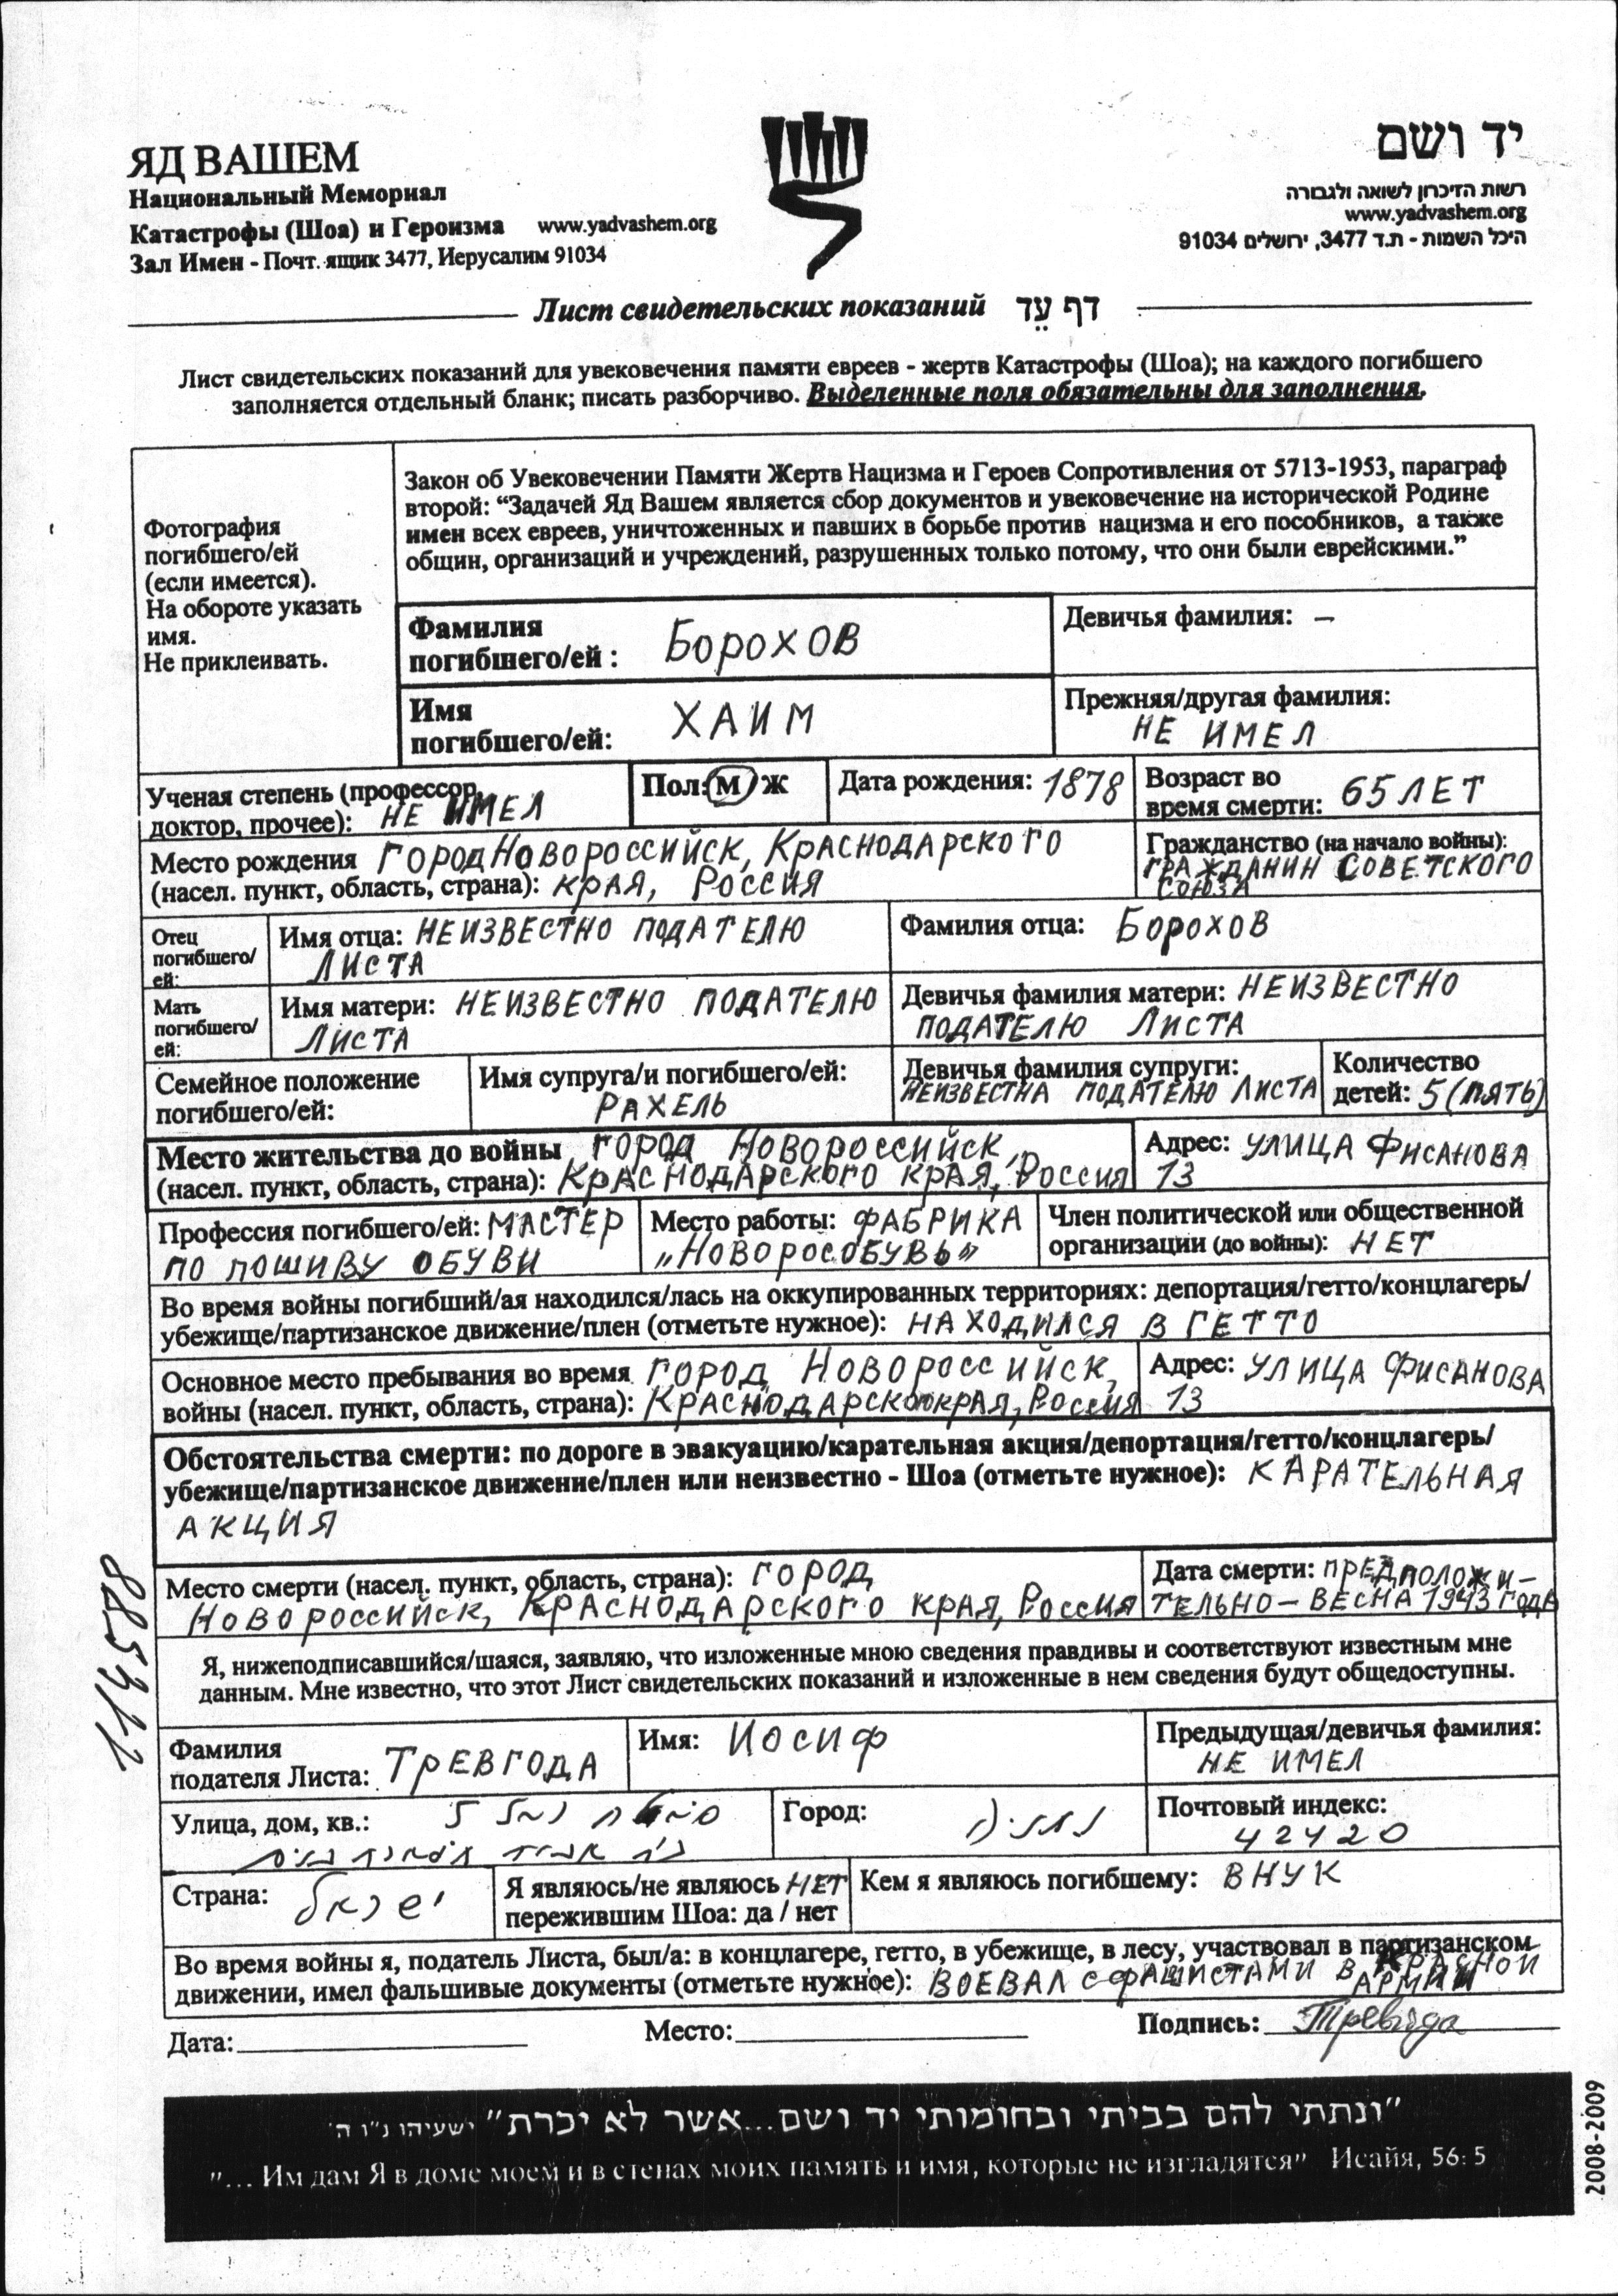 ЯД ВАШЕМ
Национальный Мемориал
Катастрофы (Шоа) и Героизма www.yadvashem.org
Зал Имен - Почт. ящик 3477, Иерусалим 91034
יד ושם
רשות הזיכרון לשואה ולגבורה
www.yadvashem.org
היכל השמות - ת.ד 3477, ירושלים 91034
Лист свидетельских показаний דף עֵד
Лист свидетельских показаний для увековечения памяти евреев - жертв Катастрофы (Шоа); на каждого погибшего
заполняется отдельный бланк; писать разборчиво. Выделенные поля обязательны для заполнения.
Фотография
погибшего/ей
(если имеется).
На обороте указать
имя.
Не приклеивать.
Закон об Увековечении Памяти Жертв Нацизма и Героев Сопротивления от 5713-1953, параграф
второй: “Задачей Яд Вашем является сбор документов и увековечение на исторической Родине
имен всех евреев, уничтоженных и павших в борьбе против нацизма и его пособников, а также
общин, организаций и учреждений, разрушенных только потому, что они были еврейскими.”
Фамилия
погибшего/ей : БОРОХОВ
Девичья фамилия: –
Имя
погибшего/ей: ХАИМ
Прежняя/другая фамилия:
НЕ ИМЕЛ
Ученая степень (профессор,
доктор, прочее): НЕ ИМЕЛ
Пол: М / Ж
Дата рождения: 1878
Возраст во
время смерти: 65 ЛЕТ
Место рождения ГОРОД НОВОРОССИЙСК, КРАСНОДАРСКОГО
(насел. пункт, область, страна): КРАЯ, РОССИЯ
Гражданство (на начало войны):
ГРАЖДАНИН СОВЕТСКОГО
СОЮЗА
Отец
погибшего/
ей:
Имя отца: НЕИЗВЕСТНО ПОДАТЕЛЮ
ЛИСТА
Фамилия отца: БОРОХОВ
Мать
погибшего/
ей:
Имя матери: НЕИЗВЕСТНО ПОДАТЕЛЮ
ЛИСТА
Девичья фамилия матери: НЕИЗВЕСТНО
ПОДАТЕЛЮ ЛИСТА
Семейное положение
погибшего/ей:
Имя супруга/и погибшего/ей:
РАХЕЛЬ
Девичья фамилия супруги:
НЕИЗВЕСТНА ПОДАТЕЛЮ ЛИСТА
Количество
детей: 5 (ПЯТЬ)
Место жительства до войны ГОРОД НОВОРОССИЙСК,
(насел. пункт, область, страна): КРАСНОДАРСКОГО КРАЯ, РОССИЯ
Адрес: УЛИЦА ФИСАНОВА
13
Профессия погибшего/ей: МАСТЕР
ПО ПОШИВУ ОБУВИ
Место работы: ФАБРИКА
„НОВОРОСОБУВЬ”
Член политической или общественной
организации (до войны): НЕТ
Во время войны погибший/ая находился/лась на оккупированных территориях: депортация/гетто/концлагерь/
убежище/партизанское движение/плен (отметьте нужное): НАХОДИЛСЯ В ГЕТТО
Основное место пребывания во время ГОРОД НОВОРОССИЙСК,
войны (насел. пункт, область, страна): КРАСНОДАРСКОГО КРАЯ, РОССИЯ
Адрес: УЛИЦА ФИСАНОВА
13
Обстоятельства смерти: по дороге в эвакуацию/карательная акция/депортация/гетто/концлагерь/
убежище/партизанское движение/плен или неизвестно - Шоа (отметьте нужное): КАРАТЕЛЬНАЯ
АКЦИЯ
Место смерти (насел. пункт, область, страна): ГОРОД
НОВОРОССИЙСК, КРАСНОДАРСКОГО КРАЯ, РОССИЯ
Дата смерти: ПРЕДПОЛОЖИ-
ТЕЛЬНО – ВЕСНА 1943 ГОДА
114588
Я, нижеподписавшийся/шаяся, заявляю, что изложенные мною сведения правдивы и соответствуют известным мне
данным. Мне известно, что этот Лист свидетельских показаний и изложенные в нем сведения будут общедоступны.
Фамилия
подателя Листа: ТРЕВГОДА
Имя: ИОСИФ
Предыдущая/девичья фамилия:
НЕ ИМЕЛ
Улица, дом, кв.: 5
Город: נתניה
Почтовый индекс:
42420
Страна: ישראל
Я являюсь/не являюсь НЕТ
пережившим Шоа: да / нет
Кем я являюсь погибшему: ВНУК
Во время войны я, податель Листа, был/а: в концлагере, гетто, в убежище, в лесу, участвовал в партизанском
движении, имел фальшивые документы (отметьте нужное): ВОЕВАЛ С ФАШИСТАМИ В КРАСНОЙ
АРМИИ
Дата: Место: Подпись: Тревгода
"ונתתי להם בביתי ובחומותי יד ושם...אשר לא יכרת" ישעיהו נ"ו ה'
"... Им дам Я в доме моем и в стенах моих память и имя, которые не изгладятся" Исайя, 56: 5
2008-2009